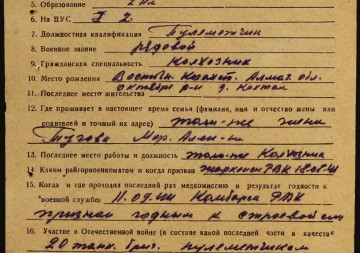 5. Образование 2 кл
6. На ВУС № 2
7. Должностная квалификация Пулеметчик
8. Военное звание рядовой
9. Гражданская специальность Колхозник
10. Место рождения Восточн. Казахст. Алмат. обл.
Октябрь р-н д. Коктал
11. Последнее место жительства
12. Где проживает в настоящее время семья (фамилия, имя и отчество жены или
родителей и точный их адрес) там-же жена
Мар. Алек-на
13. Последнее место работы и должность там-же Колхозник
14. Каким райгорвоенкоматом и когда призван РВК
15. Когда и где проходил последний раз медкомиссию и результат годности к
военной службе 11.04.44 РВК
признан годным к строевой сл
16. Участие в Отечественной войне (в составе какой последней части в качеств
20 танк. бриг. пулеметчиком